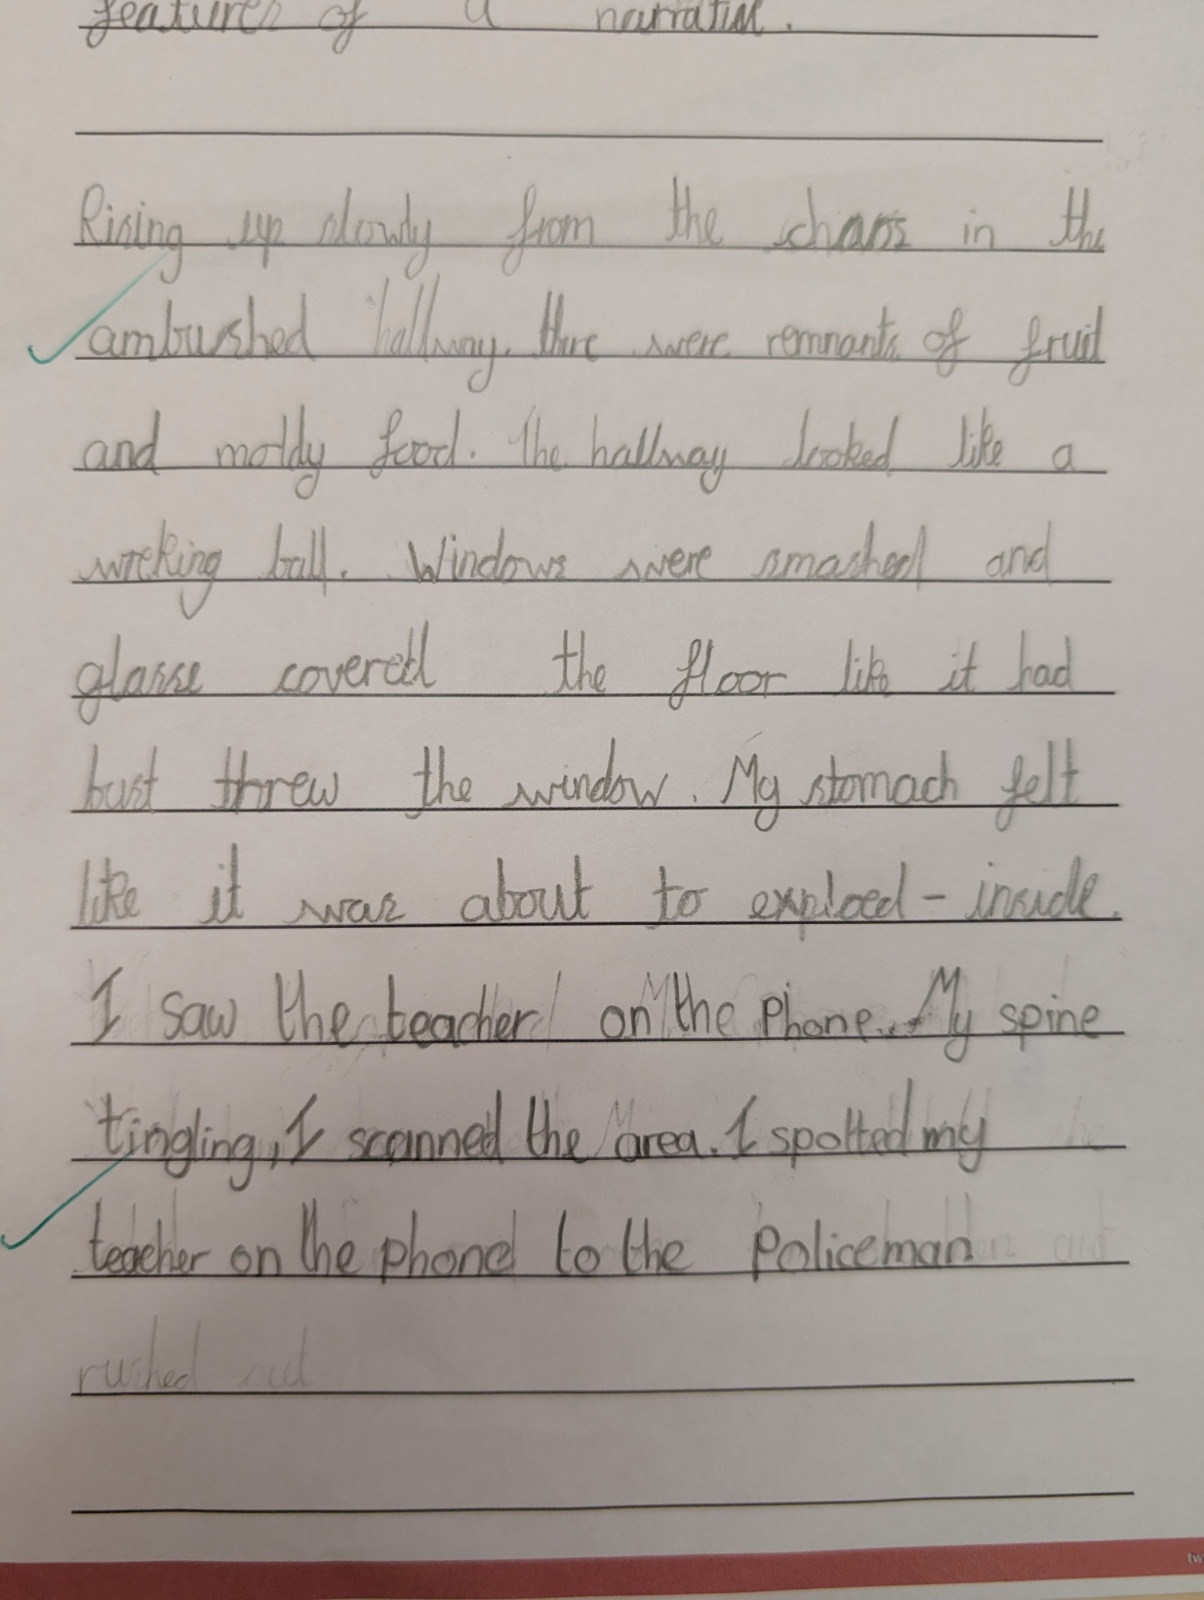 features of a narrative.
Rising up slowly from the chaos in the
ambushed hallway. there were remnants of fruit
and moldy food. The hallway looked like a
wreking ball. Windows were smashed and
glasse covered the floor like it had
bust threw the window. My stomach felt
like it was about to exploed - inside.
I saw the teacher on the phone. My spine
tingling, I scanned the area. I spotted my
teacher on the phone to the Policeman
rushed out